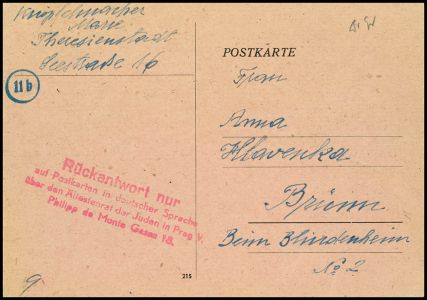 Knöpfelmacher
Marie
Theresienstadt
Seestraße 16
11b
Rückantwort nur
auf Postkarten in deutscher Sprache
über den Ältestenrat der Juden in Prag V.
Philipp de Monte Gasse 18.
POSTKARTE
Frau
Anna
Hlavenka
Brünn
Beim Blindenheim
No 2
215